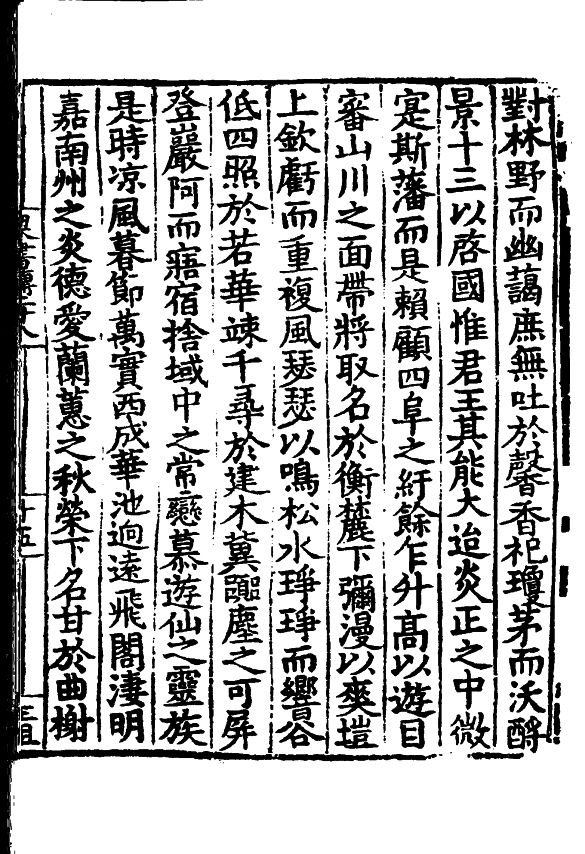 對林野而幽藹庶無吐於馨香祀瓊茅而沃酹
景十三以啓國惟君王其能大迨炎正之中微
寔斯藩而是賴顧四阜之紆餘乍升高以遊目
審山川之面帶將取名於衡麓下彌漫以爽塏
上欽虧而重複風瑟瑟以鳴松水琤琤而響谷
低四照於若華竦千尋於建木冀囂塵之可屏
登巖阿而寤宿捨域中之常戀慕遊仙之靈族
是時凉風暮節萬實西成華池迥遠飛閣凄明
嘉南州之炎德愛蘭蕙之秋榮下名甘於曲榭
十五